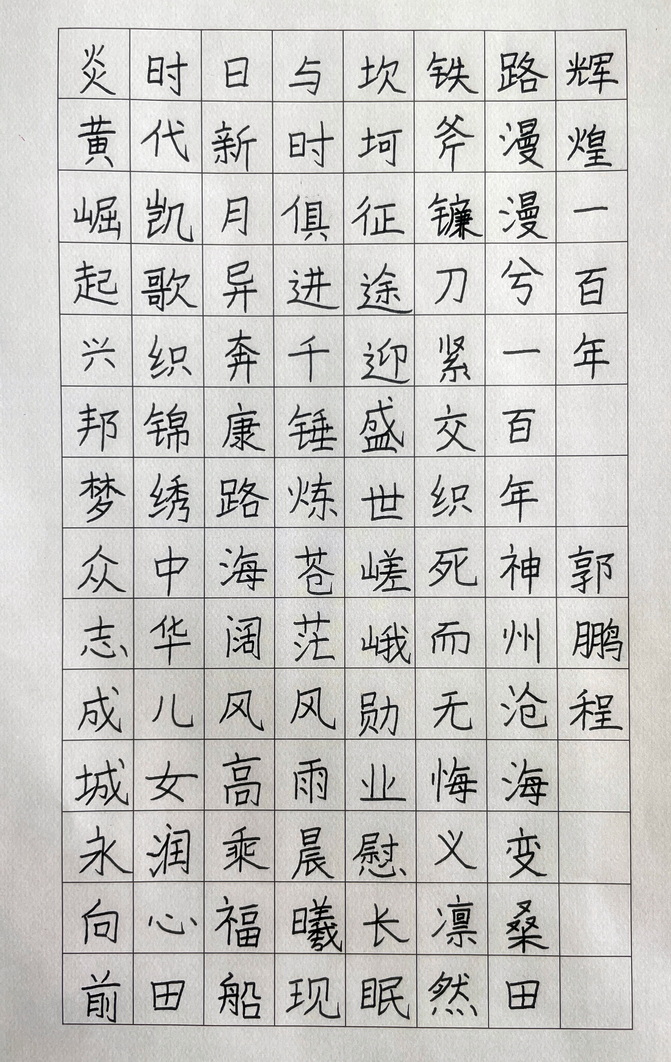 辉煌一百年 郭鹏程
路漫漫兮一百年神州沧海变桑田
铁斧镰刀紧交织死而无悔义凛然
坎坷征途迎盛世嵯峨勋业慰长眠
与时俱进千锤炼苍茫风雨晨曦现
日新月异奔康路海阔风高乘福船
时代凯歌织锦绣中华儿女润心田
炎黄崛起兴邦梦众志成城永向前